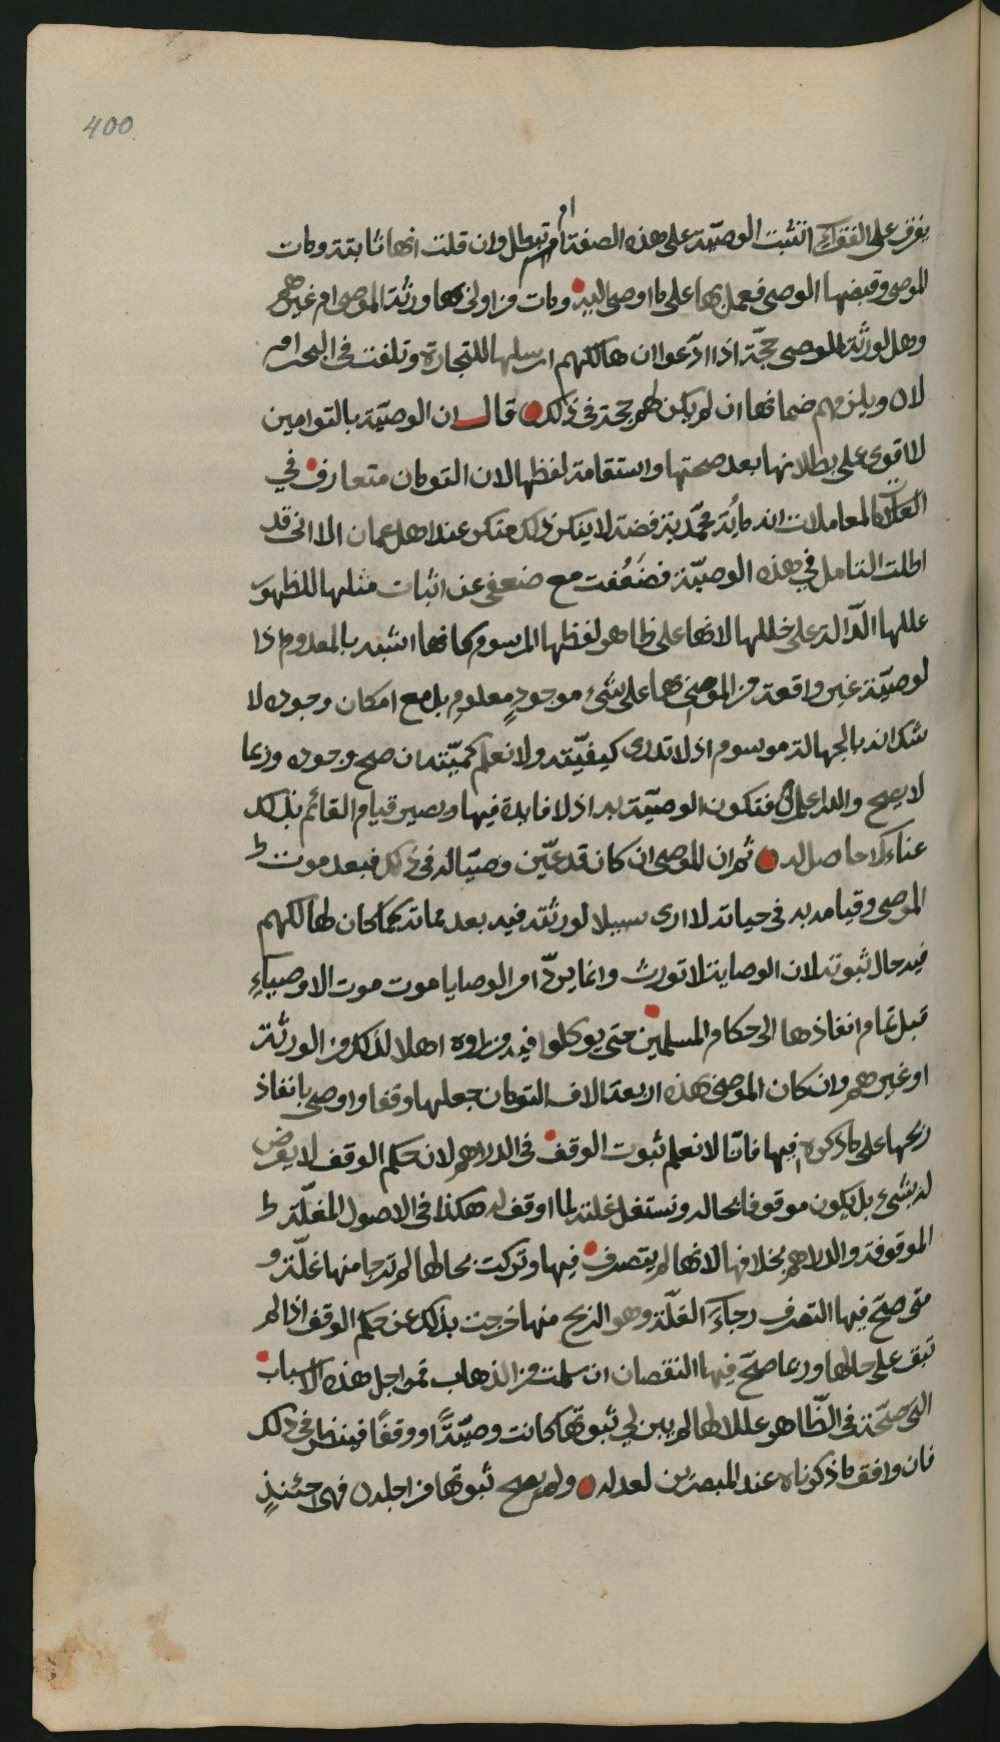 400
او
يفرق على الفقراء اتثبت الوصيّة على هذه الصفة ام تبطل وان قلت انها ثابتة ومات
الموصى وقبضها الوصى فعمل بها على ما اوصى اليه ومات من اولى بها ورثة الموصى ام غيرهم
وهل لورثة الموصى حجّة اذا ادّعوا ان هالكهم ارسلها للتجارة وتلفت فى البحر ام
لا ويلزمهم ضمانها ان لم يكن لهم حجة فى ذلك قال ان الوصيّة بالتوامين
لا اقوى على بطلانها بعد صحتها واستقامة لفظها لان التومان متعارف في
المعاملات انه مأية محمّدية فضة لا ينكر ذلك منكر عند اهل عمان الا انى قد
اطلت التامل في هذه الوصيّة فضعُفت مع ضعفى عن اثبات مثلها لظهور
عللها الدّالة على خللها لانها على ظاهر لفظها المرسوم كانها اشبه بالمعدوم اذا
لوصيّة غير واقعة من الموصى بها على شىء موجودٍ معلوم بل مع امكان وجوده لا
شك انه بالجهالة موسوم اذ لا تدرى كيفيّته ولا نعلم كميّته ان صح وجوده وربما
لا يصح والله اعلم فتكون الوصيّة به اذ لا فايدة فيها ويصير قيام القائم بذلك
عناء لا حاصل له ثم ان الموصى ان كان قد عيّن وصيّا له فى ذلك فبعد موت
الموصى وقيامه به فى حياته لا ارى سبيلا لورثته فيه بعد مماته كما كان لهالكهم
فيه حال ثبوته لان الوصاية لا تورث وانما يردّ امر الوصايا موت الاوصياء
قبل تمام انفاذها الى حكام المسلمين حتى يوكلوا فيه من راوه اهلا لذلك من الورثة
او غيرهم وان كان الموصى بهذه اربعة الاف التومان جعلها وقفا واوصى بانفاذ
ربحها على ما ذكره فيها فانّا لا نعلم ثبوت الوقف فى الدراهم لان حكم الوقف لا يعرض
له بشىء بل يكون موقوفا بحاله وتستغل غلته لما اوقف له هكذا فى الاصول المغلّة
الموقوفة والدراهم بخلافها لانها لم يتصرف فيها وتركت بحالها لم ترجا منها غلّة و
متى صحّ فيها التصرف رجاءَ الغلّة وهو الربح منها خرجت بذلك عن حكم الوقف اذ لم
تبق على حالها وربما صحّ فيها النقصان ان سلمت من الذهاب فمن اجل هذه الاسباب
التى صحّت فى الظّاهر عللا لها لم يبن لي ثبوتها كانت وصيّةً او وقفًا فينظر فى ذلك
فان وافق ما ذكرناه عند المبصرين لعدله ولم يصح ثبوتها من اجله فهى حنئذٍ